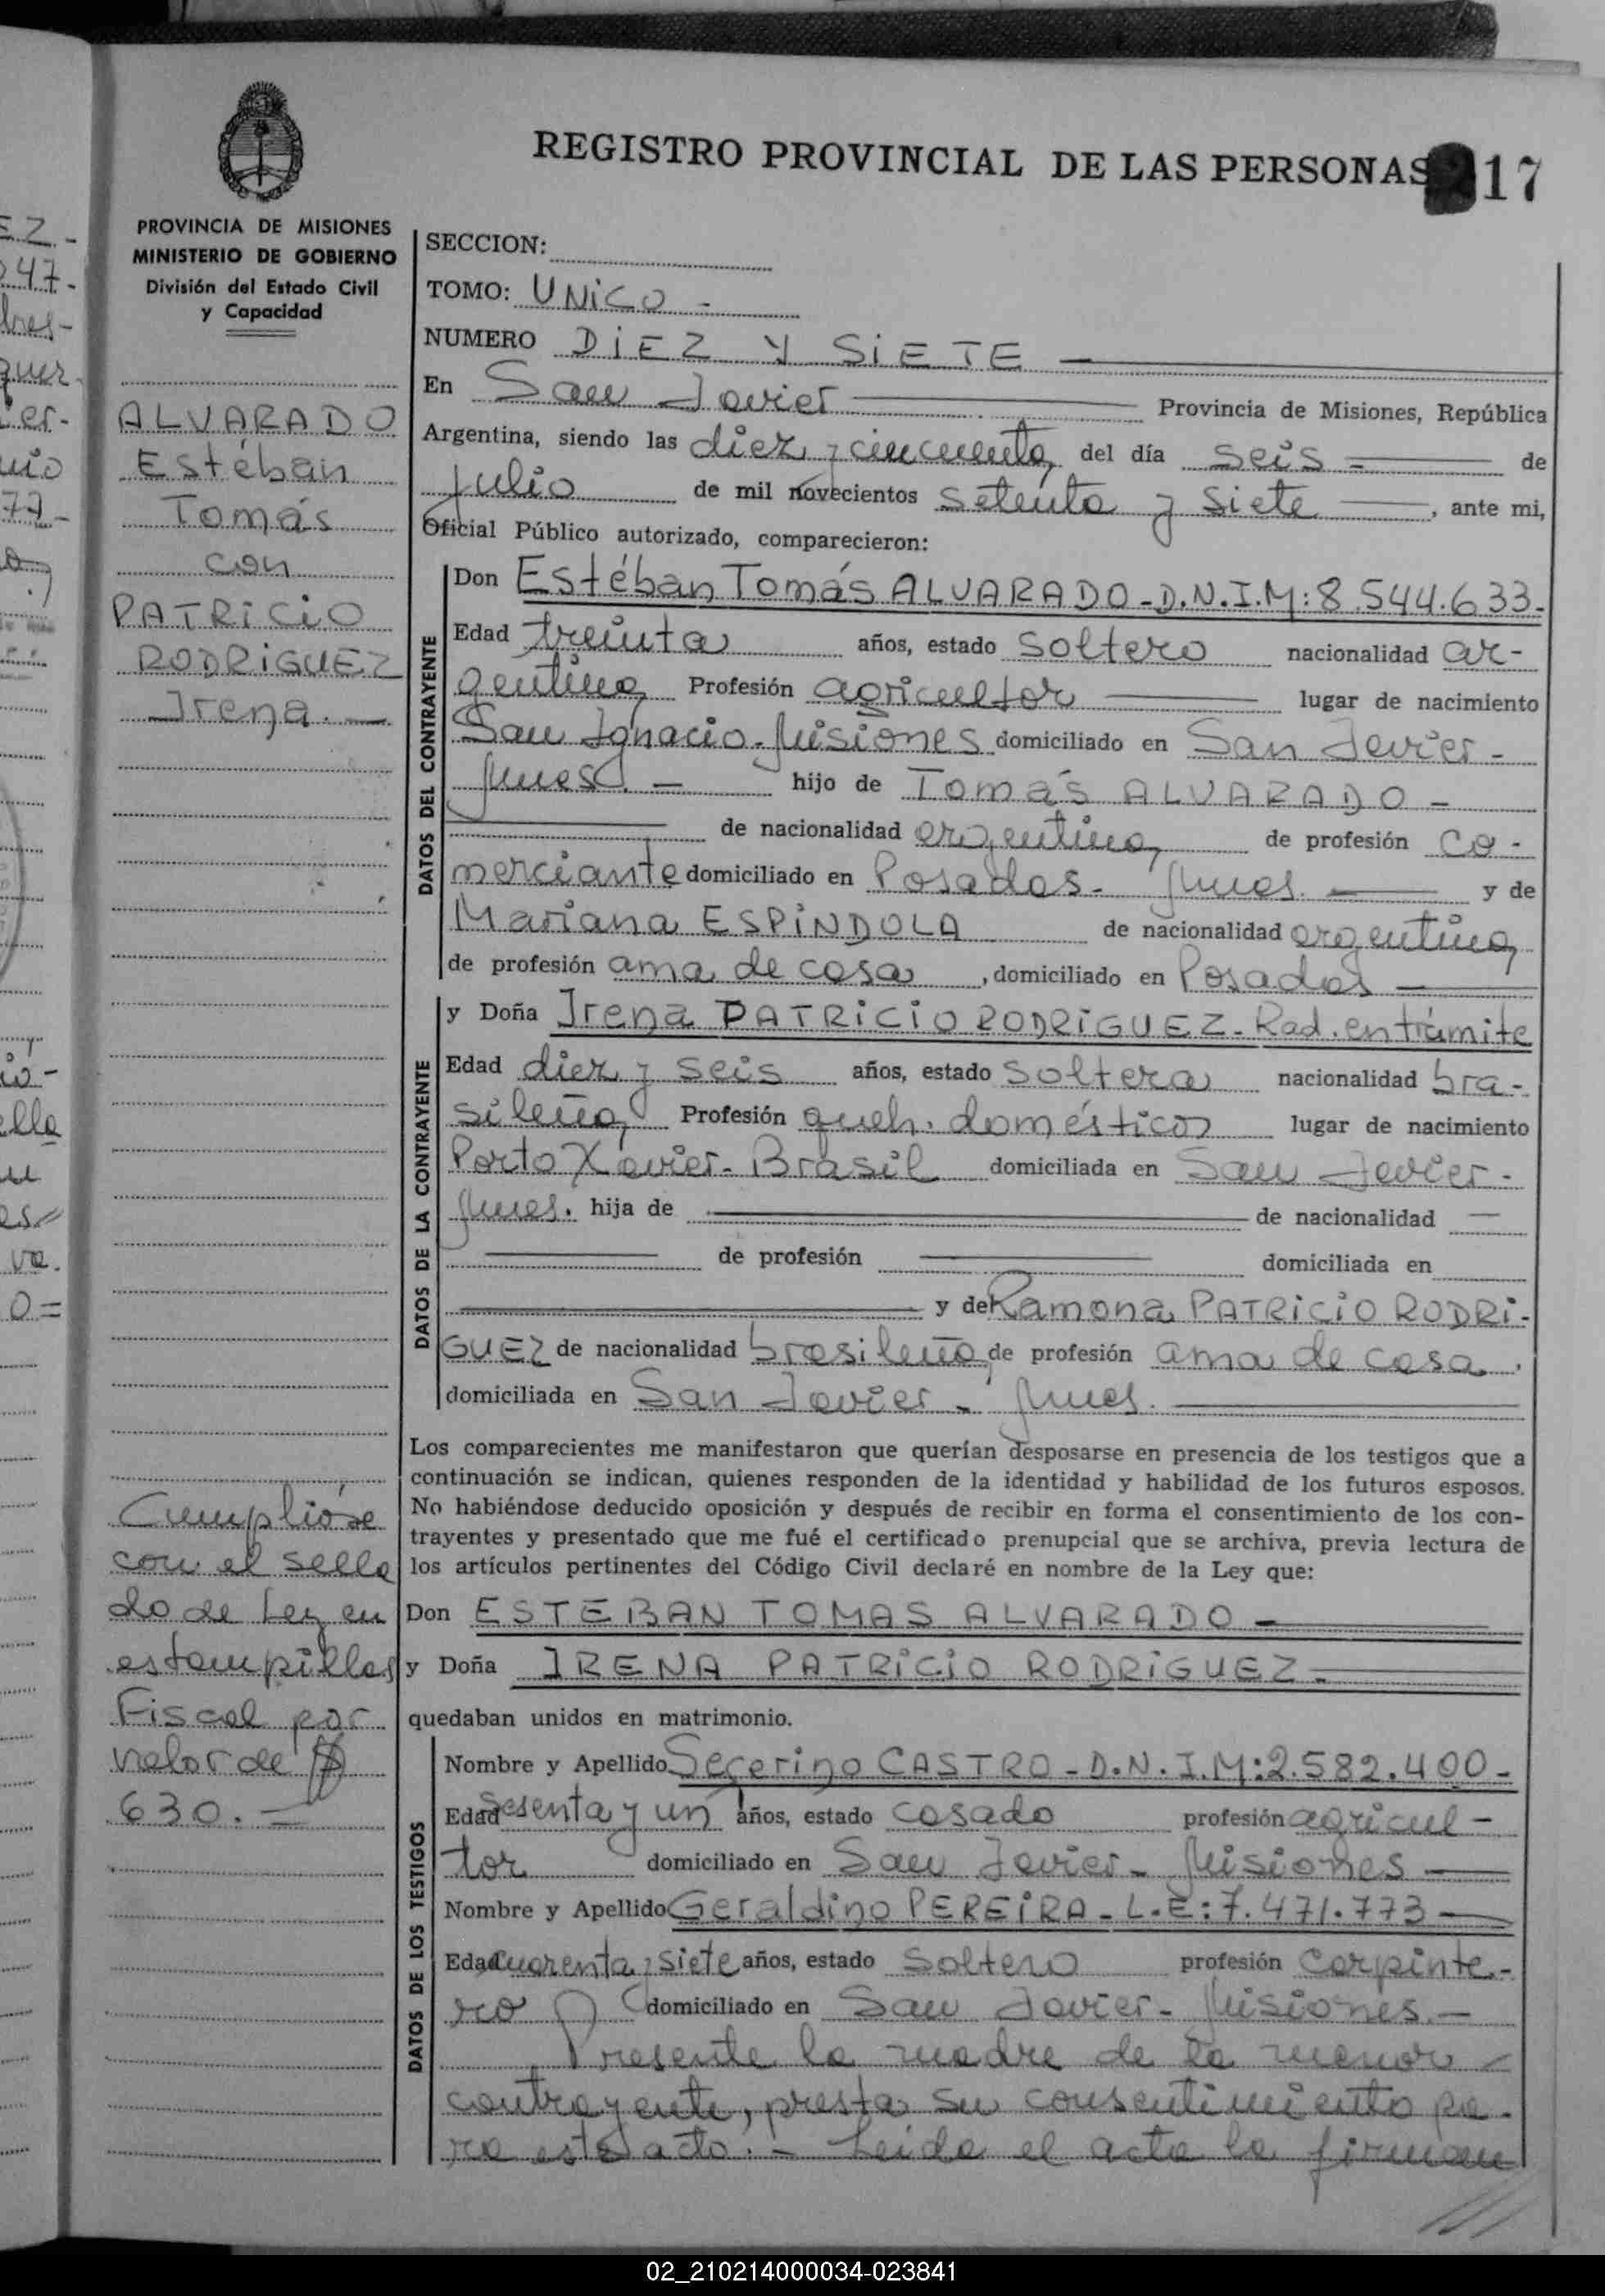 REGISTRO PROVINCIAL DE LAS PERSONAS 17
PROVINCIA DE MISIONES
MINISTERIO DE GOBIERNO
División del Estado Civil
y Capacidad
ALVARADO
Estéban
Tomás
con
PATRICIO
RODRIGUEZ
Irena. —
Cumplióse
con el sella
do de Ley en
estampillas
Fiscal por
valor de $
630. —
SECCION:
TOMO: UNICO -
NUMERO DIEZ Y SIETE
En San Javier Provincia de Misiones, República
Argentina, siendo las diez y cincuenta del día seis - de
julio de mil novecientos setenta y siete, ante mi,
Oficial Público autorizado, comparecieron:
DATOS DEL CONTRAYENTE
Don Estéban Tomás ALVARADO - D.N.I.M: 8.544.633.
Edad treinta años, estado soltero nacionalidad ar-
gentina Profesión agricultor lugar de nacimiento
San Ignacio - Misiones domiciliado en San Javier -
Mnes. — hijo de Tomás ALVARADO -
de nacionalidad argentina de profesión co-
merciante domiciliado en Posadas - Mnes. y de
Mariana ESPINDOLA de nacionalidad argentina
de profesión ama de casa, domiciliado en Posadas
DATOS DE LA CONTRAYENTE
y Doña Irena PATRICIO RODRIGUEZ - Rad. en trámite
Edad diez y seis años, estado soltera nacionalidad bra-
sileña Profesión queh. domésticos lugar de nacimiento
Porto Xavier - Brasil domiciliada en San Javier -
Mnes. hija de — de nacionalidad —
— de profesión — domiciliada en
— y de Ramona PATRICIO RODRI-
GUEZ de nacionalidad brasileña de profesión ama de casa,
domiciliada en San Javier - Mnes.
Los comparecientes me manifestaron que querían desposarse en presencia de los testigos que a
continuación se indican, quienes responden de la identidad y habilidad de los futuros esposos.
No habiéndose deducido oposición y después de recibir en forma el consentimiento de los con-
trayentes y presentado que me fué el certificado prenupcial que se archiva, previa lectura de
los artículos pertinentes del Código Civil declaré en nombre de la Ley que:
Don ESTEBAN TOMAS ALVARADO -
y Doña IRENA PATRICIO RODRIGUEZ -
quedaban unidos en matrimonio.
DATOS DE LOS TESTIGOS
Nombre y Apellido CASTRO - D.N.I.M: 2.582.400 -
Edad sesenta y un años, estado casado profesión agricul-
tor domiciliado en San Javier - Misiones
Nombre y Apellido Geraldino PEREIRA - L.E: 7.471.773
Edad cuarenta y siete años, estado soltero profesión carpinte-
ro domiciliado en San Javier - Misiones. -
Presente la madre de la menor
contrayente, presta su consentimiento pa-
ra este acto. - Leída el acta la firman
02_210214000034-023841